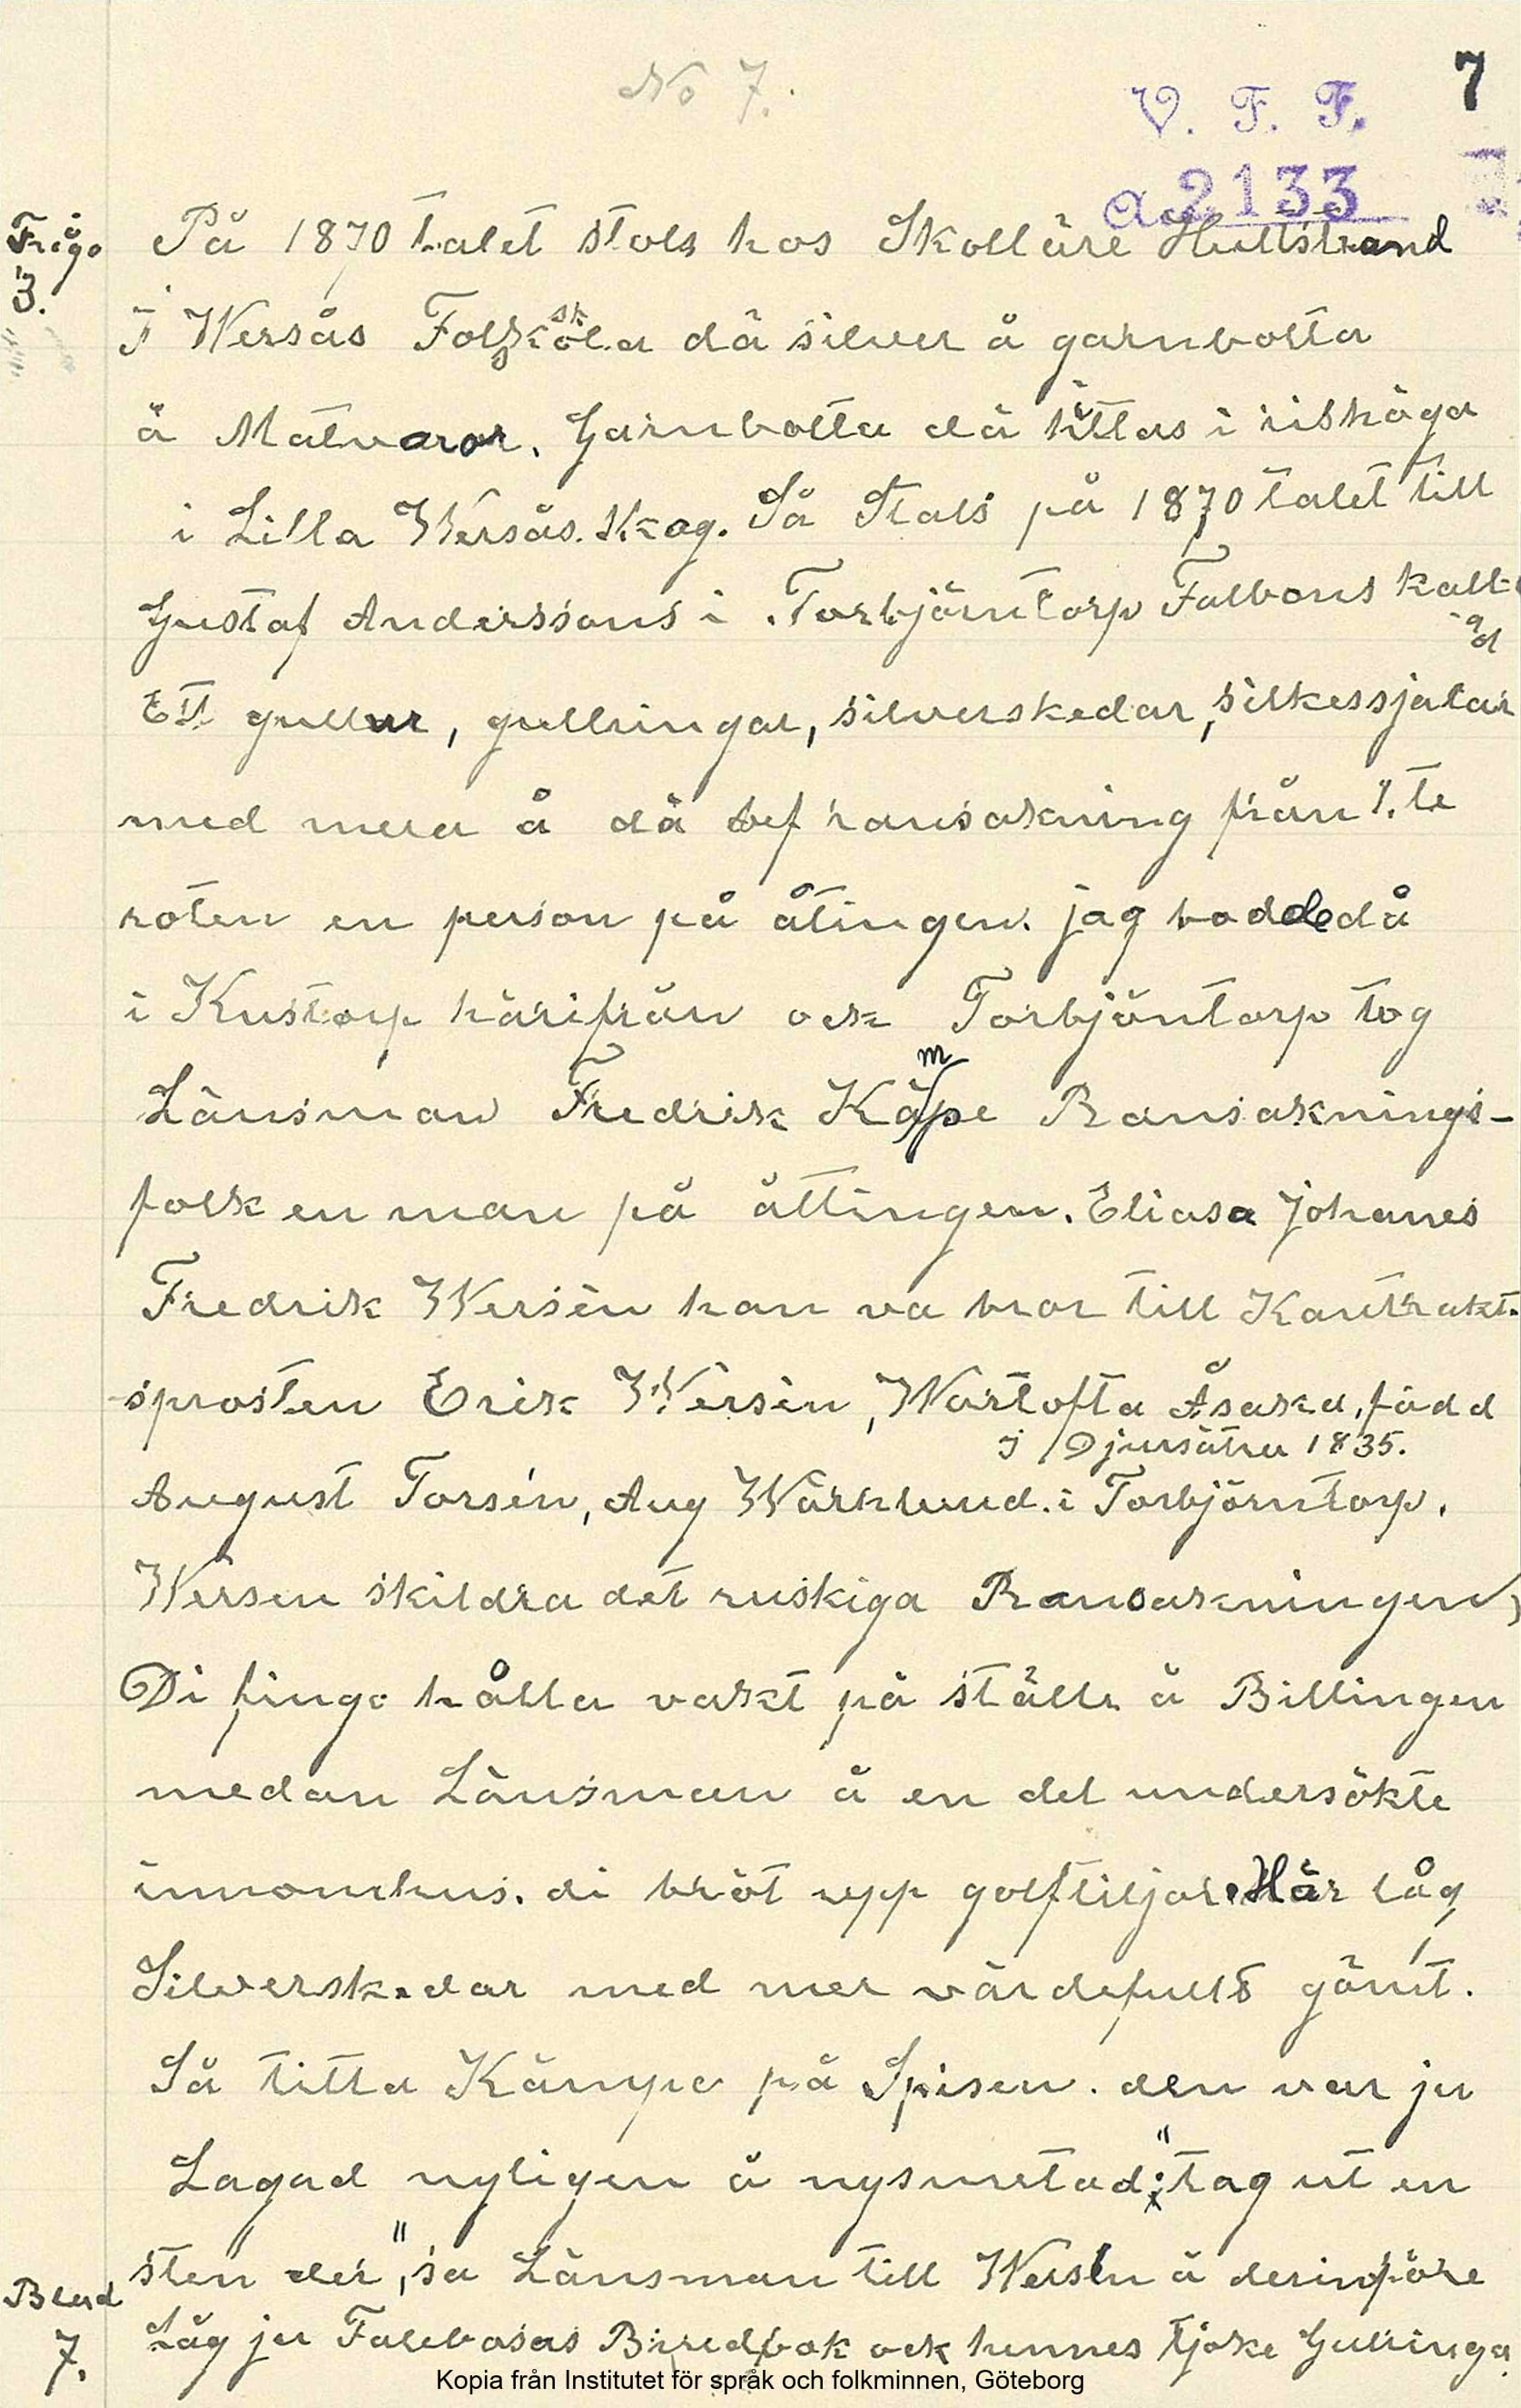 No 7.
7
V. F. F.
a 2133
Fråga 3.
På 1870 talet stals hos Skolläre Hultstrand
I Wersås Folkskola då silver å garnbotta
å Matvaror. Garnbotta då hittas i rishöga
i Lilla Wersås. Skog. Så Stals på 1870 talet till
Gustaf Anderssons i Torbjörntorp Falbons kall-
ad
Ett gullur, gullringar, silverskedar, silkessjalar
med mera å då blef ransakning från 1.te
roten en person på åtingen. jag bodde då
i Kustorp härifrån ock Torbjöntorp tog
Länsman Fredrik Kämpe Ransaknings-
folk en man på åttingen. Eliasa Johanes
Fredrik Wersèn han va bror till Kontrakt-
sprosten Erik Wersèn, Wartofta Åsaka, född
i Djursätra 1835.
August Torsén, Aug Wårklund. i Torbjörntorp.
Wersen skildra det ruskiga Ransakningen,
Di fingo hålla vakt på ställe å Billingen
medan Länsman å en del undersökte
innomhus. di bröt upp golftiljor. Här låg
Silverskedar med mer värdefullt gömt.
Så titta Kämpe på Spisen. den var ju
Lagad nyligen å nysmetad: "tag ut en
sten der", sa Länsman till Wersen å derinföre
Låg ju Falebosas Bredbok ock hennes tjoke Gullringa
Blad 7.
Kopia från Institutet för språk och folkminnen, Göteborg